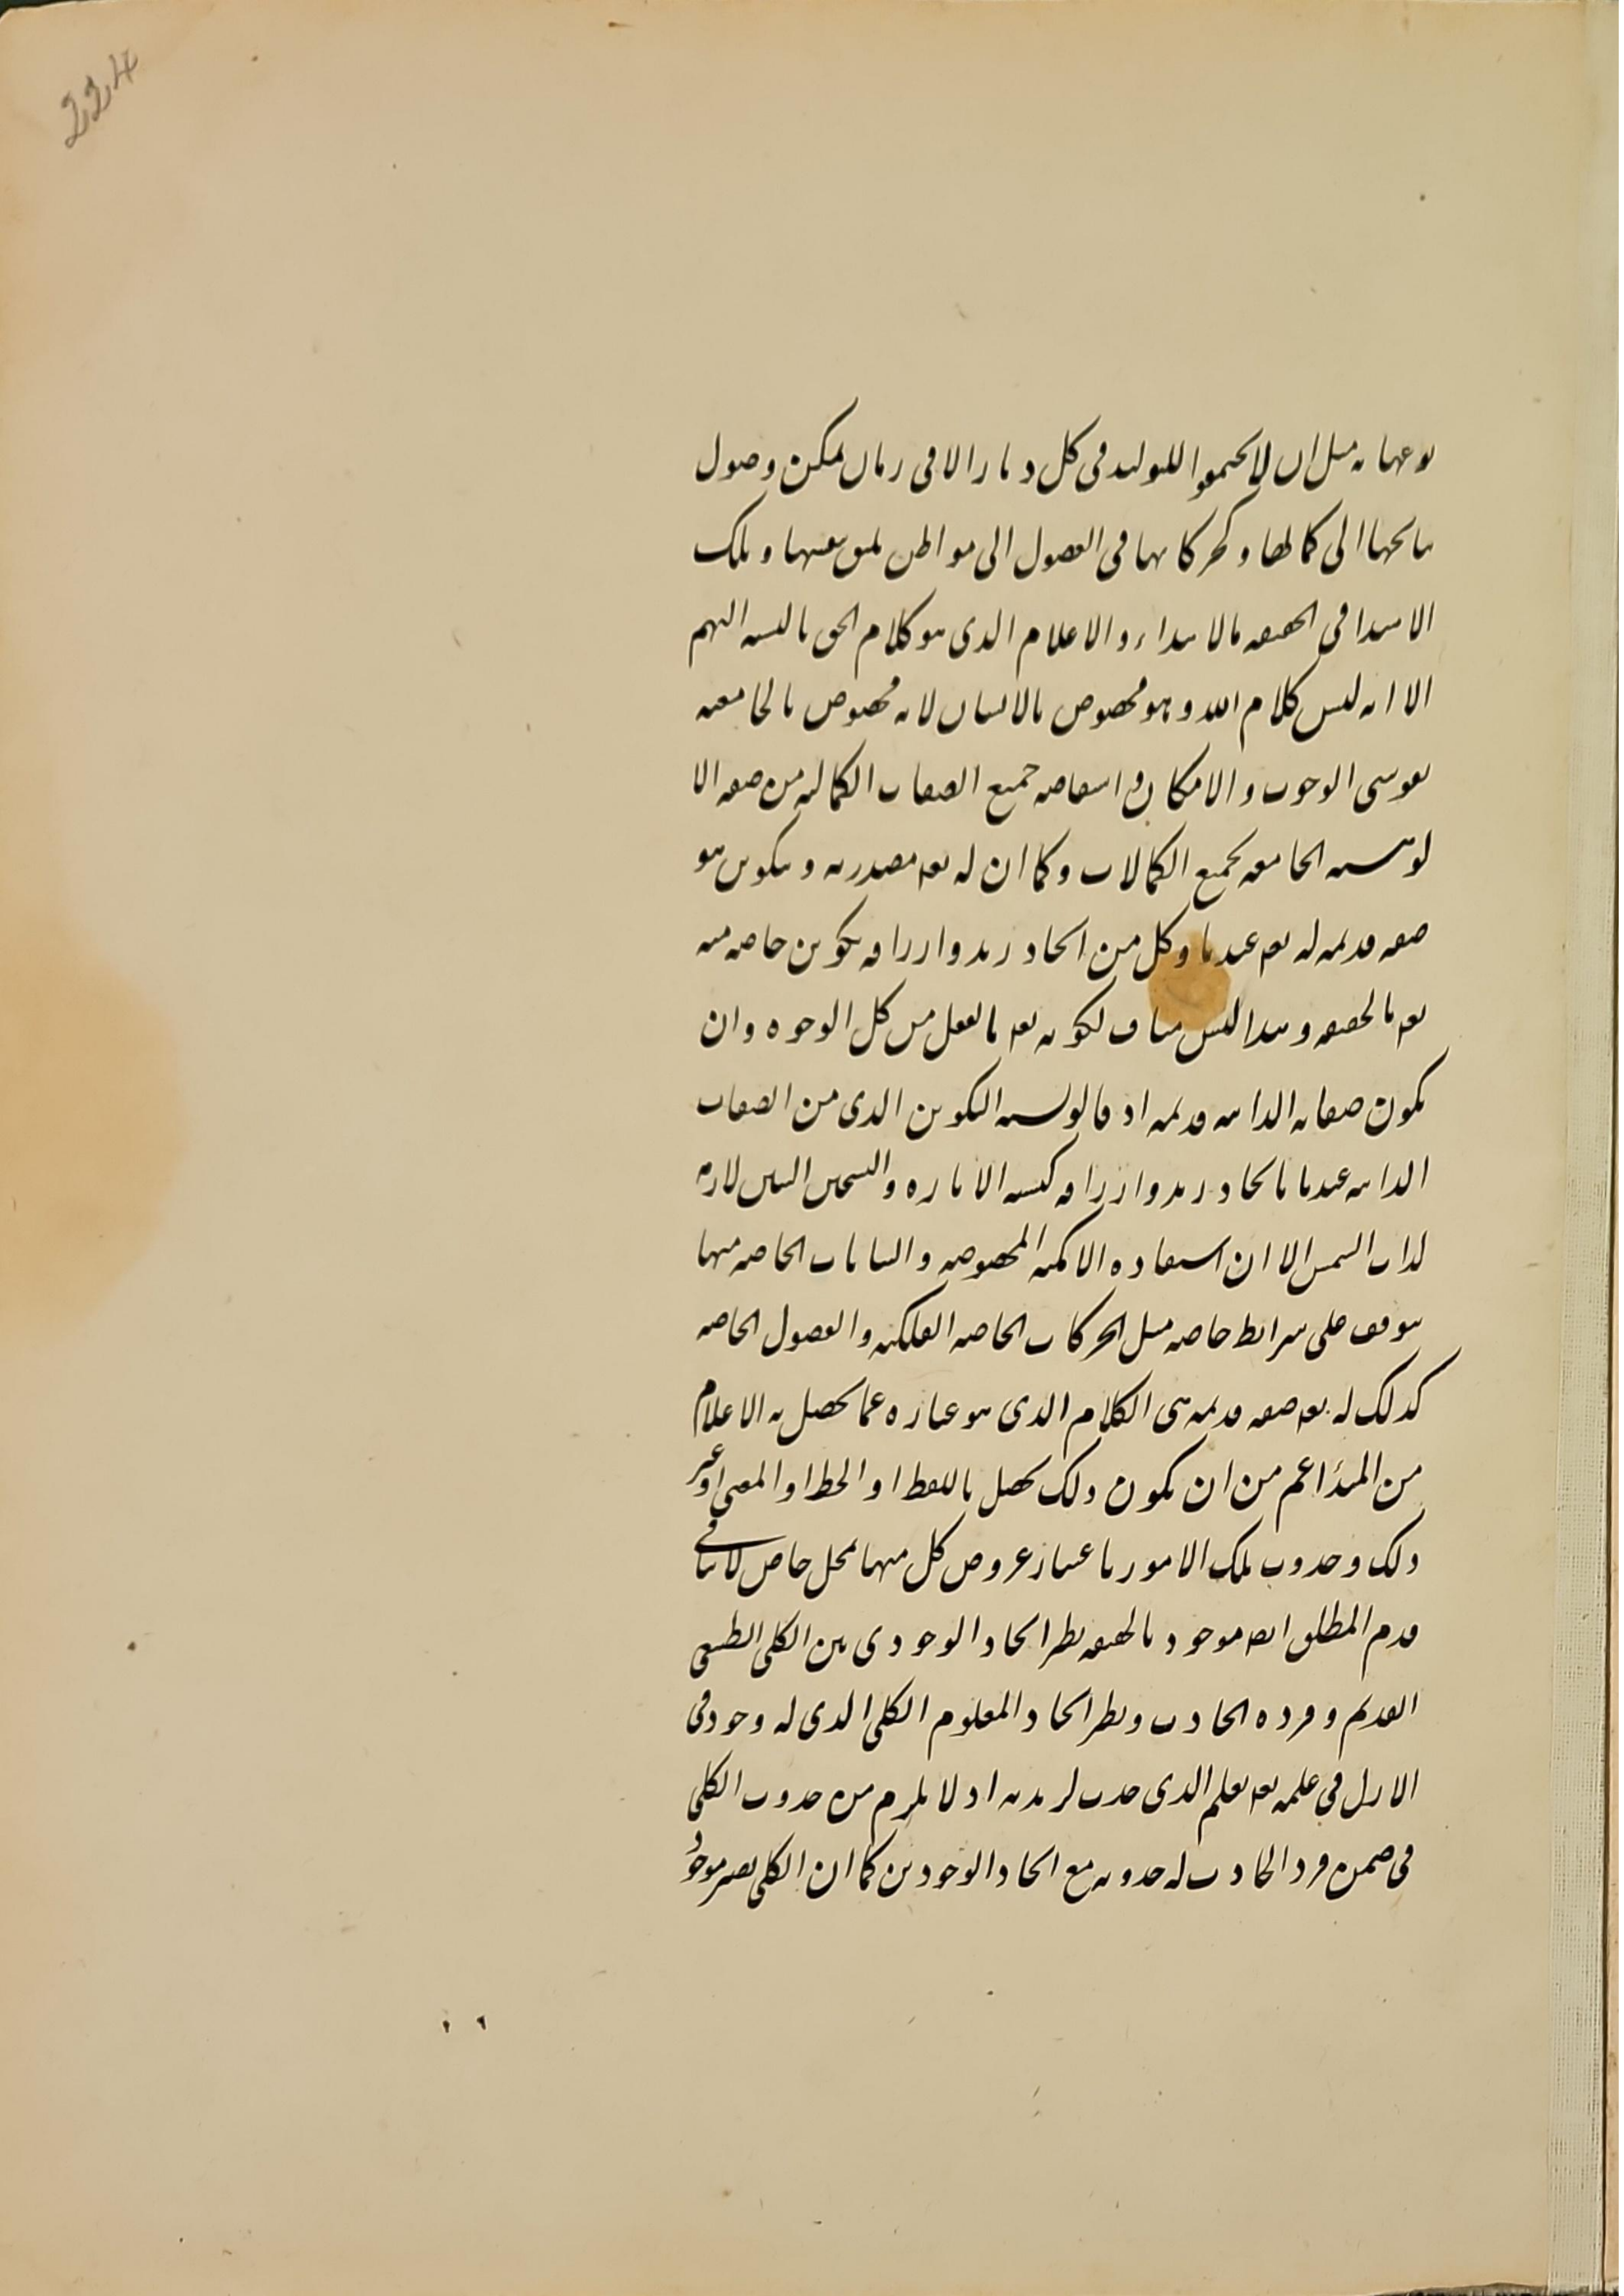 224
نوعها به مثل ان لا يجتمعوا للتوليد فى كل ديار الا فى زمان يمكن وصول
نتايجها الى كمالها و كحركاتها فى الفصول الى مواطن يليق بتعيشها و تلك
الاهتدا فى الحقيقه بالابتداء و الاعلام الذى هو كلام الحق بالنسبه اليهم
الا انه ليس كلام الله و هو مخصوص بالانسان لانه مخصوص بالجامعيه
بقوسى الوجوب و الامكان و استفاضه جميع الصفات الكماليه من صفه الا
لوهيه الجامعه لجميع الكمالات و كما ان له تعه مصدريه و تكوين هو
صفه قديمه له تعه عندنا و كل من ايجاد زيد و ارزاقه تكوين خاصه منه
تعه بالحقيقه و هذا ليس مناف لكونه تعه بالفعل من كل الوجوه و ان
يكون صفاته الذاتيه قديمه اذ قالو نسبه التكوين الذى من الصفات
الذاتيه عندنا بايجاد زيد و ارزاقه كنسبه الاناره و التسخين اللتين لازمه
لذات الشمس الا ان استفاده الامكنه المخصوصه و النباتات الخاصه منها
يتوقف على شرايط خاصه مثل الحركات الخاصه الفلكيه و الفصول الخاصه
كذلك له تعه صفه قديمه هى الكلام الذى هو عباره عما يحصل به الاعلام
من المبدٔا اعم من ان يكون ذلك يحصل باللفظ او الخط او المعنى او غير
ذلك و حدوث تلك الامور باعتبار عروض كل منها لمحل خاص لا ينافى
قدم المطلق ايضه موجود بالحقيقه نظر ايحاد الوجودى بين الكلى الطبيعى
القديم و فرده الحادث و نظر اتحاد المعلوم الكلى الذى له وجود فى
الازل فى علمه تعه بعلم الذى حدث لزيد به اذ لا يلزم من حدوث الكلى
فى ضمن فرد الحادث له حدوثه مع اتحاد الوجودين كما ان الكلى يصير موجود